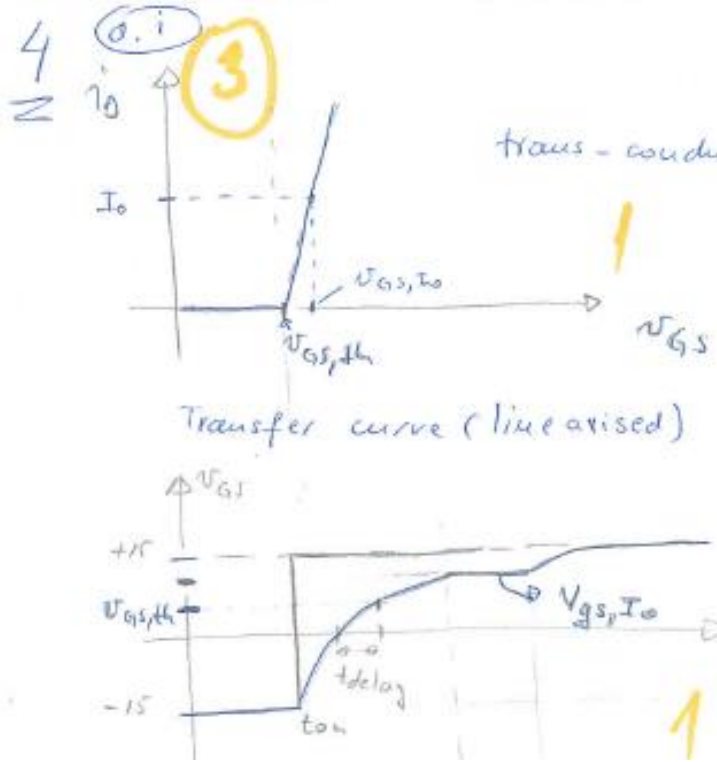 4 o.i 3
i_D
trans-condu
I_o
1
v_GS,Io
v_GS,th
v_GS
Transfer curve (linearised)
v_GS
+15
v_GS,th
V_gs,Io
tdelay
-15
ton
1